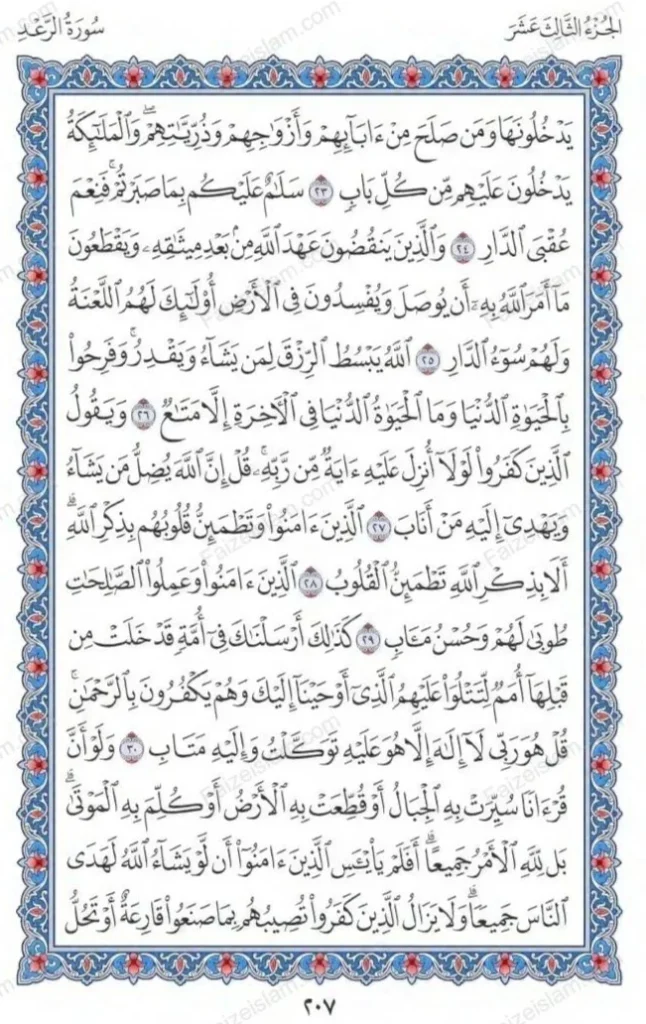 الجُزْءُ الثَّالِثَ عَشَرَ
سُورَةُ الرَّعْدِ
يَدْخُلُونَهَا وَمَن صَلَحَ مِنْ ءَابَآئِهِمْ وَأَزْوَٰجِهِمْ وَذُرِّيَّٰتِهِمْ ۖ وَٱلْمَلَٰٓئِكَةُ
يَدْخُلُونَ عَلَيْهِم مِّن كُلِّ بَابٍ ٢٣ سَلَٰمٌ عَلَيْكُم بِمَا صَبَرْتُمْ ۚ فَنِعْمَ
عُقْبَى ٱلدَّارِ ٢٤ وَٱلَّذِينَ يَنقُضُونَ عَهْدَ ٱللَّهِ مِنۢ بَعْدِ مِيثَٰقِهِۦ وَيَقْطَعُونَ
مَآ أَمَرَ ٱللَّهُ بِهِۦٓ أَن يُوصَلَ وَيُفْسِدُونَ فِى ٱلْأَرْضِ أُو۟لَٰٓئِكَ لَهُمُ ٱللَّعْنَةُ
وَلَهُمْ سُوٓءُ ٱلدَّارِ ٢٥ ٱللَّهُ يَبْسُطُ ٱلرِّزْقَ لِمَن يَشَآءُ وَيَقْدِرُ ۚ وَفَرِحُوا۟
بِٱلْحَيَوٰةِ ٱلدُّنْيَا وَمَا ٱلْحَيَوٰةُ ٱلدُّنْيَا فِى ٱلْءَاخِرَةِ إِلَّا مَتَٰعٌ ٢٦ وَيَقُولُ
ٱلَّذِينَ كَفَرُوا۟ لَوْلَآ أُنزِلَ عَلَيْهِ ءَايَةٌ مِّن رَّبِّهِۦ ۗ قُلْ إِنَّ ٱللَّهَ يُضِلُّ مَن يَشَآءُ
وَيَهْدِىٓ إِلَيْهِ مَنْ أَنَابَ ٢٧ ٱلَّذِينَ ءَامَنُوا۟ وَتَطْمَئِنُّ قُلُوبُهُم بِذِكْرِ ٱللَّهِ ۗ
أَلَا بِذِكْرِ ٱللَّهِ تَطْمَئِنُّ ٱلْقُلُوبُ ٢٨ ٱلَّذِينَ ءَامَنُوا۟ وَعَمِلُوا۟ ٱلصَّٰلِحَٰتِ
طُوبَىٰ لَهُمْ وَحُسْنُ مَـَٔابٍ ٢٩ كَذَٰلِكَ أَرْسَلْنَٰكَ فِىٓ أُمَّةٍ قَدْ خَلَتْ مِن
قَبْلِهَآ أُمَمٌ لِّتَتْلُوَا۟ عَلَيْهِمُ ٱلَّذِىٓ أَوْحَيْنَآ إِلَيْكَ وَهُمْ يَكْفُرُونَ بِٱلرَّحْمَٰنِ ۚ
قُلْ هُوَ رَبِّى لَآ إِلَٰهَ إِلَّا هُوَ عَلَيْهِ تَوَكَّلْتُ وَإِلَيْهِ مَتَابِ ٣٠ وَلَوْ أَنَّ
قُرْءَانًا سُيِّرَتْ بِهِ ٱلْجِبَالُ أَوْ قُطِّعَتْ بِهِ ٱلْأَرْضُ أَوْ كُلِّمَ بِهِ ٱلْمَوْتَىٰ ۗ
بَل لِّلَّهِ ٱلْأَمْرُ جَمِيعًا ۗ أَفَلَمْ يَا۟يْـَٔسِ ٱلَّذِينَ ءَامَنُوٓا۟ أَن لَّوْ يَشَآءُ ٱللَّهُ لَهَدَى
ٱلنَّاسَ جَمِيعًا ۗ وَلَا يَزَالُ ٱلَّذِينَ كَفَرُوا۟ تُصِيبُهُم بِمَا صَنَعُوا۟ قَارِعَةٌ أَوْ تَحُلُّ
٢٠٧
Faizeislam.com